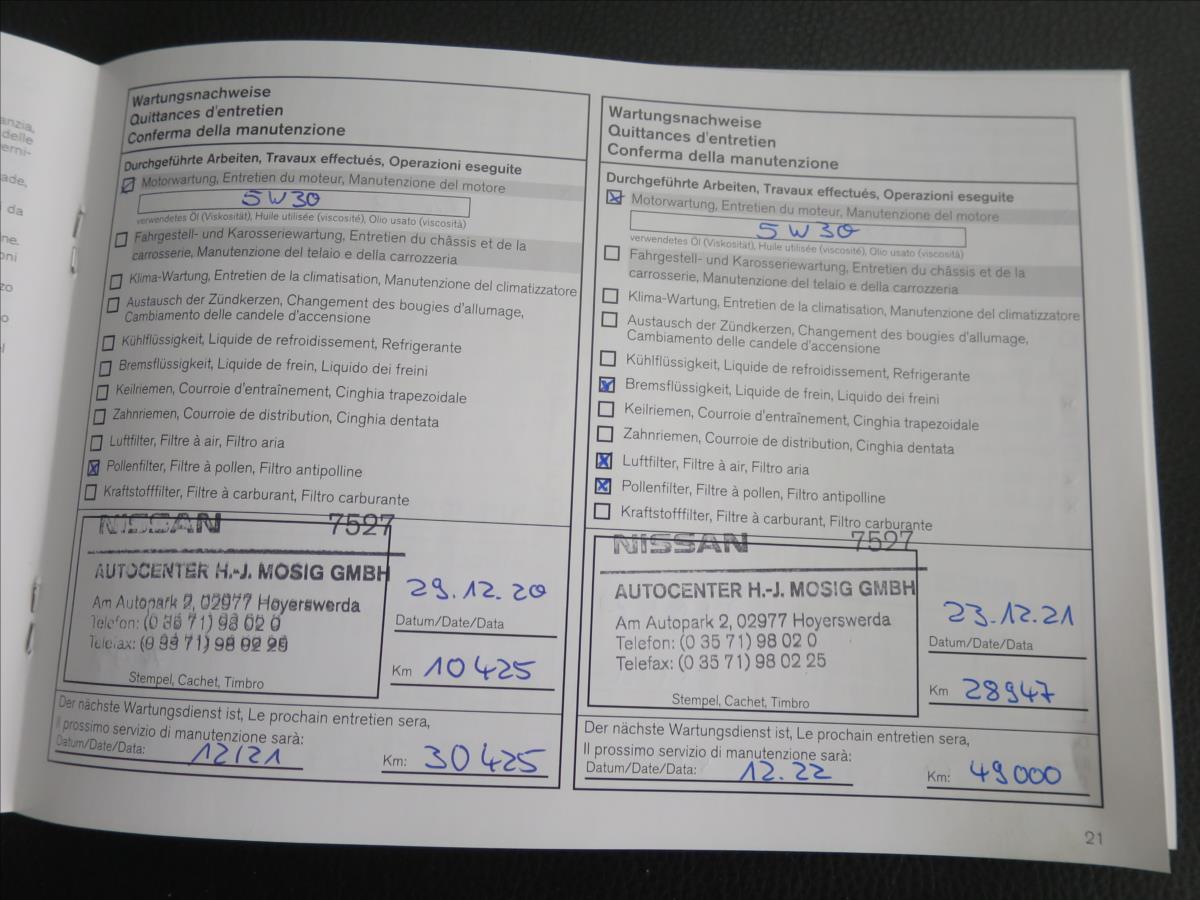 anzia,
delle
erni-
ade,
i da
ne.
oni
zo
o
el
Wartungsnachweise
Quittances d'entretien
Conferma della manutenzione
Durchgeführte Arbeiten, Travaux effectués, Operazioni eseguite
Motorwartung, Entretien du moteur, Manutenzione del motore
5W30
verwendetes Öl (Viskosität), Huile utilisée (viscosité), Olio usato (viscosità)
Fahrgestell- und Karosseriewartung, Entretien du châssis et de la
carrosserie, Manutenzione del telaio e della carrozzeria
Klima-Wartung, Entretien de la climatisation, Manutenzione del climatizzatore
Austausch der Zündkerzen, Changement des bougies d'allumage,
Cambiamento delle candele d'accensione
Kühlflüssigkeit, Liquide de refroidissement, Refrigerante
Bremsflüssigkeit, Liquide de frein, Liquido dei freini
Keilriemen, Courroie d'entraînement, Cinghia trapezoidale
Zahnriemen, Courroie de distribution, Cinghia dentata
Luftfilter, Filtre à air, Filtro aria
Pollenfilter, Filtre à pollen, Filtro antipolline
Kraftstofffilter, Filtre à carburant, Filtro carburante
NISSAN 7527
AUTOCENTER H.-J. MOSIG GMBH
Am Autopark 2, 02977 Hoyerswerda
Telefon: (0 35 71) 98 02 0
Telefax: (0 35 71) 98 02 25
Stempel, Cachet, Timbro
29.12.20
Datum/Date/Data
Km 10425
Der nächste Wartungsdienst ist, Le prochain entretien sera,
Il prossimo servizio di manutenzione sarà:
Datum/Date/Data: 12/21 Km: 30425
Wartungsnachweise
Quittances d'entretien
Conferma della manutenzione
Durchgeführte Arbeiten, Travaux effectués, Operazioni eseguite
Motorwartung, Entretien du moteur, Manutenzione del motore
5W30
verwendetes Öl (Viskosität), Huile utilisée (viscosité), Olio usato (viscosità)
Fahrgestell- und Karosseriewartung, Entretien du châssis et de la
carrosserie, Manutenzione del telaio e della carrozzeria
Klima-Wartung, Entretien de la climatisation, Manutenzione del climatizzatore
Austausch der Zündkerzen, Changement des bougies d'allumage,
Cambiamento delle candele d'accensione
Kühlflüssigkeit, Liquide de refroidissement, Refrigerante
Bremsflüssigkeit, Liquide de frein, Liquido dei freini
Keilriemen, Courroie d'entraînement, Cinghia trapezoidale
Zahnriemen, Courroie de distribution, Cinghia dentata
Luftfilter, Filtre à air, Filtro aria
Pollenfilter, Filtre à pollen, Filtro antipolline
Kraftstofffilter, Filtre à carburant, Filtro carburante
NISSAN 7527
AUTOCENTER H.-J. MOSIG GMBH
Am Autopark 2, 02977 Hoyerswerda
Telefon: (0 35 71) 98 02 0
Telefax: (0 35 71) 98 02 25
Stempel, Cachet, Timbro
23.12.21
Datum/Date/Data
Km 28947
Der nächste Wartungsdienst ist, Le prochain entretien sera,
Il prossimo servizio di manutenzione sarà:
Datum/Date/Data: 12.22 Km: 49000
21